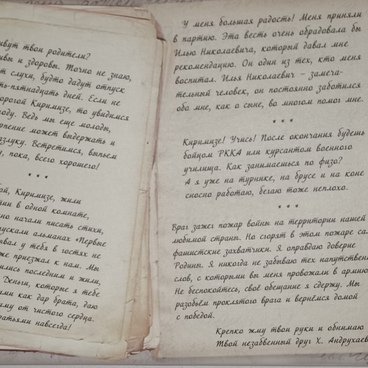 ивут твои родители?
вы и здоровы. Точно не знаю,
т слухи, будто дадут отпуск
ть-пятнадцать дней. Если не
орогой Киримизе, то увидимся
году. Ведь мы еще молоды,
рпение может выдержать и
разлуку. Встретимся, выпьем
у, пока, всего хорошего!
* * *
ой, Киримизе, жили
ми в одной комнате,
но начали писать стихи,
ускали альманах «Первые
ывал у тебя в гостях не
же приезжал к нам. Мы
ились последним и жили,
. Деньги, которые я тебе
ими как дар брата, даю
му от чистого сердца.
ратьями навсегда!
У меня большая радость! Меня приняли
в партию. Эта весть очень обрадовала бы
Илью Николаевича, который давал мне
рекомендацию. Он один из тех, кто меня
воспитал. Илья Николаевич - замеча-
тельный человек, он постоянно заботился
обо мне, как о сыне, во многом помог мне.
* * *
Киримизе! Учись! После окончания будешь
бойцом РККА или курсантом военного
училища. Как занимаешься по физо?
А я уже на турнике, на брусе и на коне
сносно работаю, бегаю тоже неплохо.
* * *
Враг зажег пожар войны на территории нашей
любимой страны. Но сгорят в этом пожаре сам
фашистские захватчики. Я оправдаю доверие
Родины. Я никогда не забываю тех напутствен
слов, с которыми вы меня провожали в армию
Не беспокойтесь, своё обещание я сдержу. Мы
разобьём проклятого врага и вернёмся домой
с победой.
Крепко жму твои руки и обнимаю
Твой незабвенный друг Х. Андрухаев